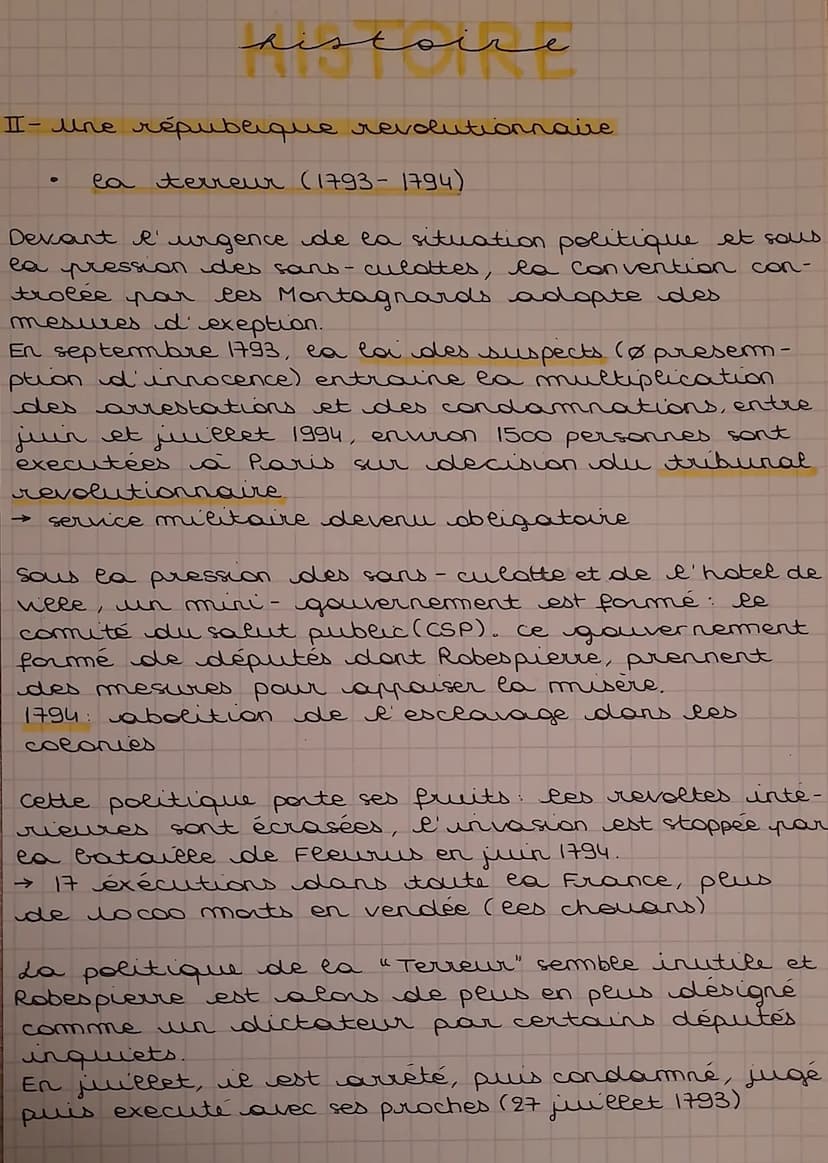 HISTOIRE
histoire
II- Une république revolutionnaire
• la terreur (1793-1794)
Devant l'urgence de la situation politique et sous
la pression des sans-culottes, la Convention con-
trolée par les Montagnards adopte des
mesures d'exeption.
En septembre 1793, la loi des suspects (Ø presem-
ption d'innocence) entraine la multiplication
des arrestations et des condamnations, entre
juin et juillet 1994, environ 1500 personnes sont
executées à Paris sur decision du tribunal
revolutionnaire
→ service militaire devenu obligatoire
Sous la pression des sans-culotte et de l'hotel de
ville, un mini-gouvernement est formé: le
comité du salut public (CSP). Ce gouvernement
formé de députés dont Robespierre, prennent
des mesures pour appaiser la misère.
1794: abolition de l'esclavage dans les
colonies
Cette politique porte ses fruits: les revoltes inté-
rieures sont écrasées, l'invasion est stoppée par
la bataille de Fleurus en juin 1794.
→ 17 éxécutions dans toute la France, plus
de 10000 morts en vendée (les chouans)
La politique de la "Terreur" semble inutile et
Robespierre est alors de plus en plus désigné
comme un dictateur par certains députés
inquiets.
En juillet, il est arrêté, puis condamné, jugé
puis executé avec ses proches (27 juillet 1793)